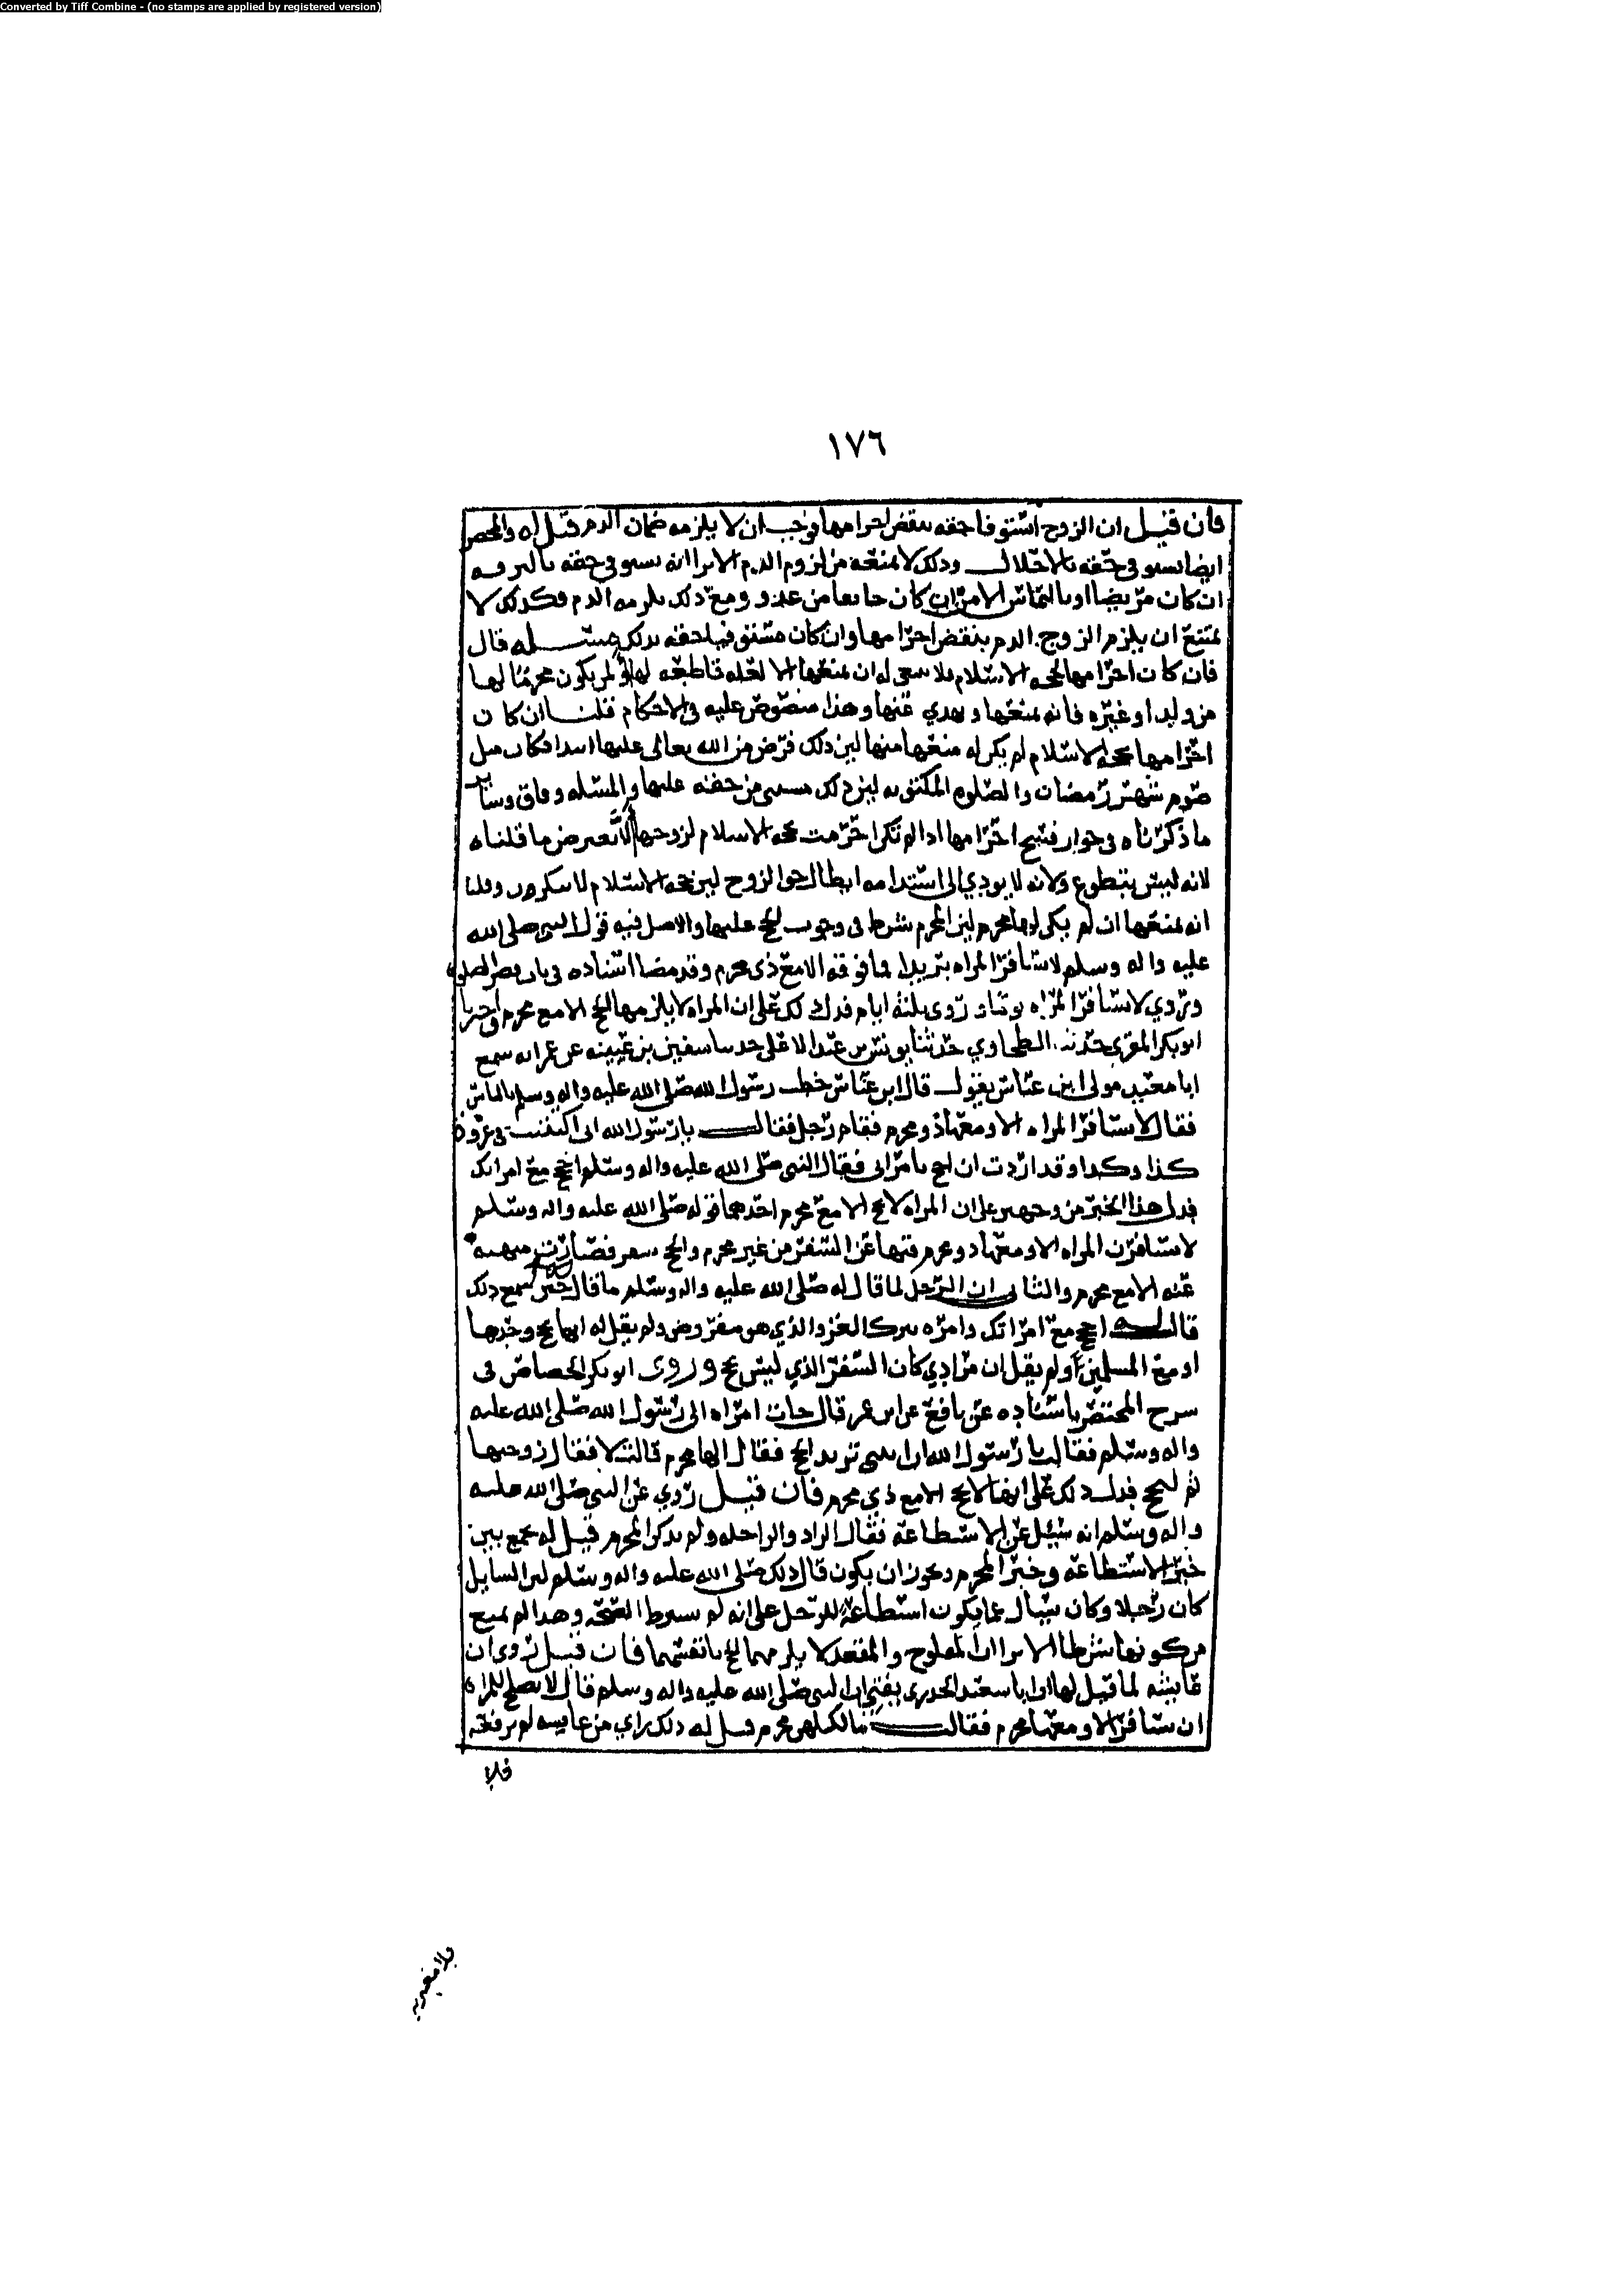 Converted by Tiff Combine - (no stamps are applied by registered version)
١٧٦
فان قيل ان الزوج استوفا حقه بنقض احرامها فوجب ان لا يلزمه ضمان الدم قيل له والمحصر
ايضا يستوفي حقه بالاحلال وذلك لا يمنعه من لزوم الدم الا ترا انه يستوفي حقه بالترفه
ان كان مريضا او بالتماس الامن ان كان خايفا من عدو ومع ذلك يلزمه الدم فكذلك لا
يمتنع ان يلزم الزوج الدم بنقض احرامها وان كان مستوفيا لحقه بذلك مسئله قال
فان كانت احرامها لحجه الاسلام فلا ينبغي له ان يمنعها الا لعله قاطعه لها او لم يكون محرما لها
من ولد او غيره فانه يمنعها ويهدي عنها وهذا منصوص عليه في الاحكام قلنا ان كان
احرامها بحجه الاسلام لم يكن له منعها منها لين ذلك فرض من الله تعالى عليها ابتدا فكان مثل
صوم شهر رمضان والصلوه المكتوبه لين ذلك مستثنى من حقه عليها والمسئله وفاق وساير
ما ذكرناه في جواز فسخ احرامها اذا لم تكن احرمت بحجه الاسلام لزوجها لا يعترض ما قلناه
لانه ليس بتطوع ولانه لا يودي الى استدامه ابطال حق الزوج لين حجه الاسلام لا تتكرر وقلنا
انه يمنعها ان لم يكن لها محرم لين المحرم شرط في وجوب الحج عليها والاصل فيه قول النبي صلى الله
عليه واله وسلم لا تسافر المراه بريدا فما فوقه الا مع ذي محرم وقد مضا اسناده في باب قصر الصلوه
وروي لا تسافر المراه يوما وروي ثلثه ايام فدل ذلك على ان المراه لا يلزمها الحج الا مع محرم واخبرنا
ابو بكر المقري حدثنا الطحاوي حدثنا يونس بن عبد الاعلى حدثنا سفين بن عيينه عن عمرو انه سمع
ابا معبد مولى ابن عباس يقول قال ابن عباس خطب رسول الله صلى الله عليه واله وسلم بالناس
فقال لا تسافر المراه الا ومعها ذو محرم فقام رجل فقال يا رسول الله اني اكتتبت في غزوة
كذا وكذا وقد اردت ان احج بامراتي فقال النبي صلى الله عليه واله وسلم احج مع امراتك
فدل هذا الخبر من وجهين على ان المراه لا تحج الا مع محرم احدهما قوله صلى الله عليه واله وسلم
لا تسافرن المراه الا ومعها ذو محرم فنهاها عن السفر من غير محرم والحج سفر فصارت منهيه
عنه الا مع محرم والثاني ان الرجل لما قال له صلى الله عليه واله وسلم ما قال حين سمع ذلك
قال له احجج مع امراتك وامره بترك الغزو الذي هو مفروض ولم يقل له انها تحج وحدها
او مع المسلمين او لم يقل ان مرادي كان السفر الذي ليس بحج وروى ابو بكر الجصاص في
شرح المختصر باسناده عن نافع عن ابن عمر قال جات امراه الى رسول الله صلى الله عليه
واله وسلم فقالت يا رسول الله ان ابنتي تريد الحج فقال الها محرم قالت لا فقال زوجيها
ثم لتحج فدل ذلك على انها لا تحج الا مع ذي محرم فان قيل روي عن النبي صلى الله عليه
واله وسلم انه سيل عن الاستطاعه فقال الزاد والراحله ولم يذكر المحرم قيل له يجمع بين
خبر الاستطاعه وخبر المحرم ويجوز ان يكون قال ذلك صلى الله عليه واله وسلم لين السايل
كان رجلا وكان يسال عما يكون استطاعه للرجل على انه لم يشرط الصحه وهذا لم يمنع
من كونها شرطا الا ترا ان المفلوج والمقعد لا يلزمهما الحج بانفسهما فان قيل روي ان
عايشه لما قيل لها ان ابا سعيد الخدري يفتي ان النبي صلى الله عليه واله وسلم قال لا يصلح للمراه
ان تسافر الا ومعها محرم فقالت ما لكلهن محرم قيل له ذلك راي من عايشه لم ترفعه
فلا